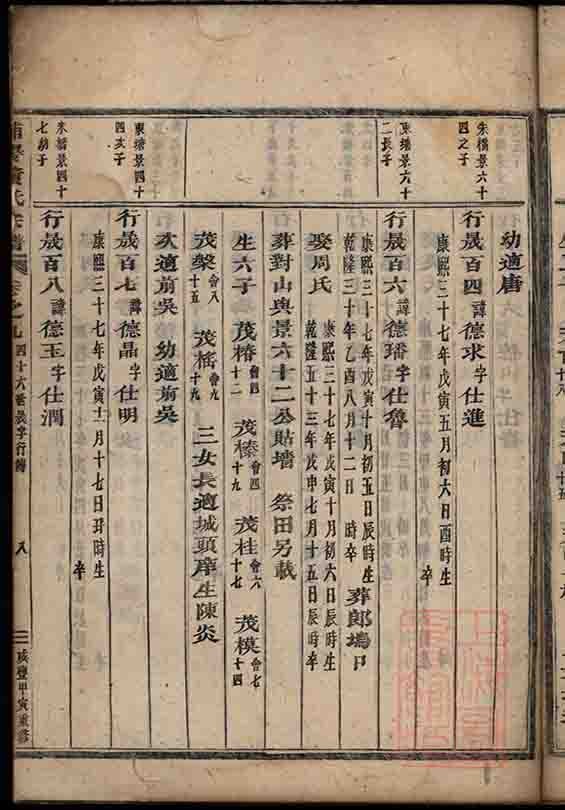 幼適唐
朱橋景六十四之子
行晟百四諱德求字仕進
康熙三十七年戊寅五月初六日酉時生 卒
東塘景六十二長子
行晟百六諱德璠字仕魯
康熙三十七年戊寅十月初五日辰時生
乾隆三十年乙酉八月十二日 時卒 葬郎塢口
娶周氏
康熙三十七年戊寅十月初六日辰時生
乾隆五十三年戊申七月十五日辰時卒
葬對山與景六十二公貼墻 祭田另載
生六子 茂椿會四十二 茂榛會四十九 茂桂會六十七 茂模會七十四
茂槃會八十五 茂楁會九十九 三女長適城頭庠生陳炎
次適前吳 幼適前吳
東塘景四十四次子
行晟百七諱德晶字仕明
康熙三十七年戊寅十一月十七日丑時生 卒
朱橋景四十七幼子
行晟百八諱德玉字仕潤
氏宗譜 卷之九 四十六世晟字行傳 八 咸豐甲寅重修